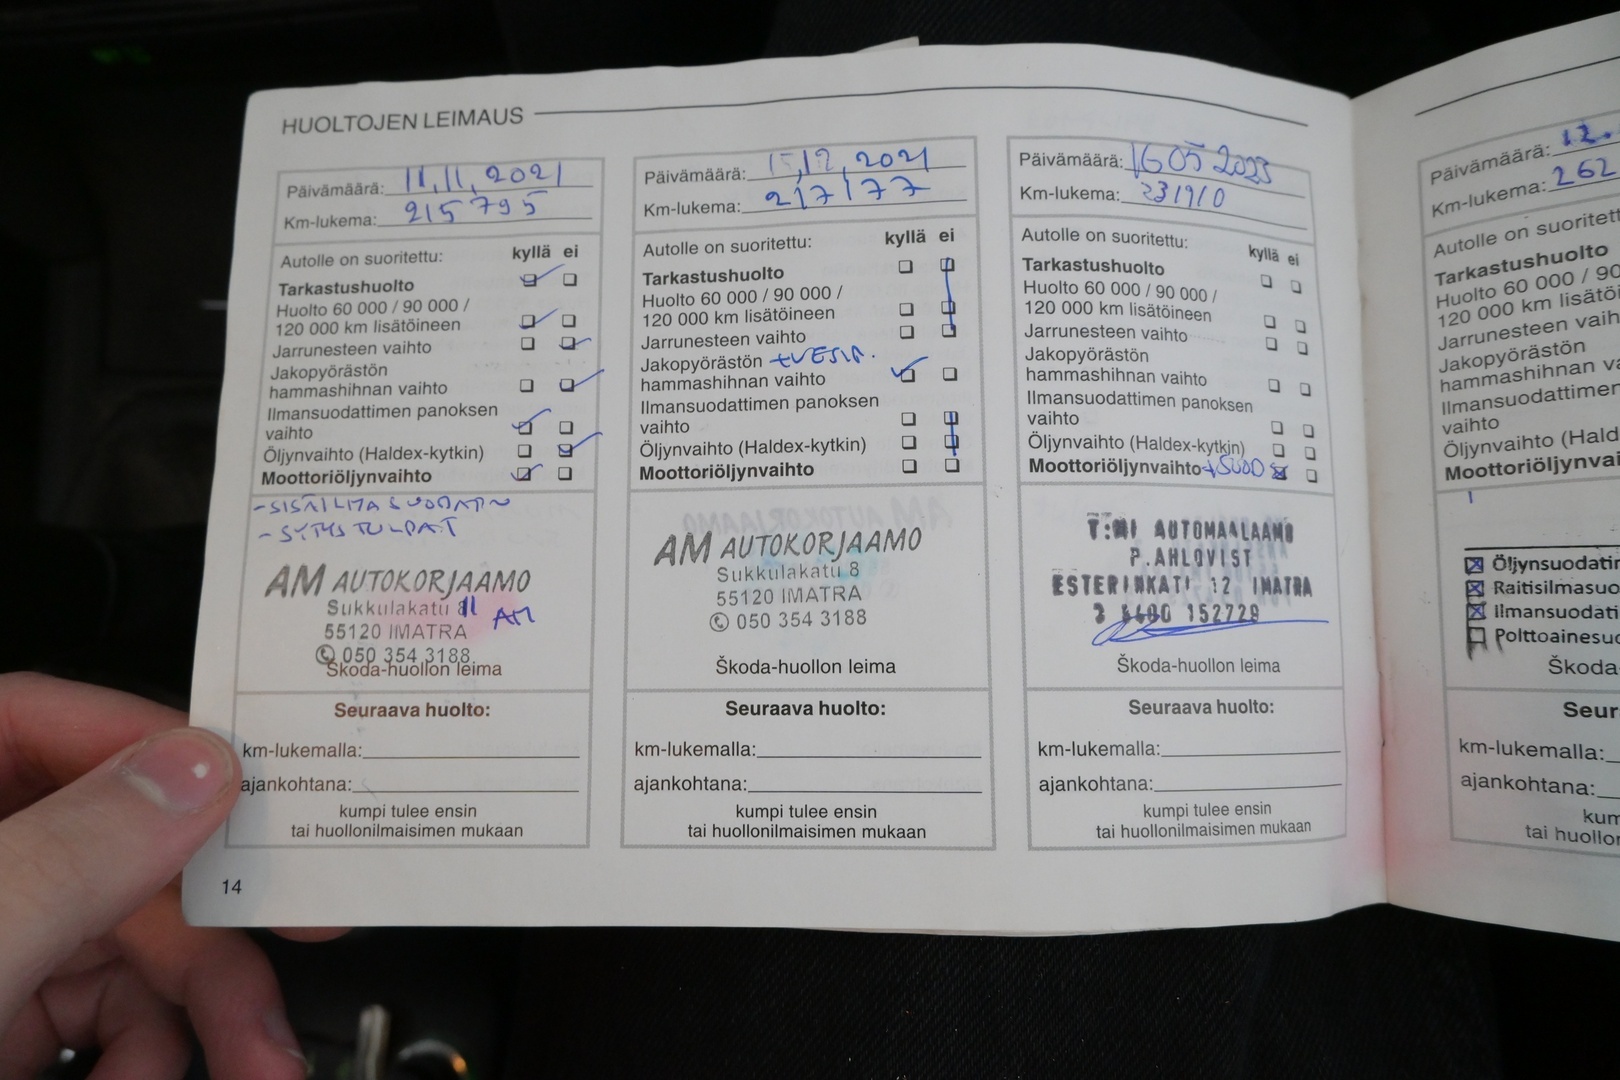 HUOLTOJEN LEIMAUS
Päivämäärä: 11.11.2021
Km-lukema: 215795
Autolle on suoritettu: kyllä ei
Tarkastushuolto
Huolto 60 000 / 90 000 /
120 000 km lisätöineen
Jarrunesteen vaihto
Jakopyörästön
hammashihnan vaihto
Ilmansuodattimen panoksen
vaihto
Öljynvaihto (Haldex-kytkin)
Moottoriöljynvaihto
- SISÄILMASUODATIN
- SYTYSTULPAT
AM AUTOKORJAAMO
Sukkulakatu 11 AM
55120 IMATRA
050 354 3188
Škoda-huollon leima
Seuraava huolto:
km-lukemalla:
ajankohtana:
kumpi tulee ensin
tai huollonilmaisimen mukaan
14
Päivämäärä: 15.12.2021
Km-lukema: 217177
Autolle on suoritettu: kyllä ei
Tarkastushuolto
Huolto 60 000 / 90 000 /
120 000 km lisätöineen
Jarrunesteen vaihto
Jakopyörästön +VESIP.
hammashihnan vaihto
Ilmansuodattimen panoksen
vaihto
Öljynvaihto (Haldex-kytkin)
Moottoriöljynvaihto
AM AUTOKORJAAMO
Sukkulakatu 8
55120 IMATRA
050 354 3188
Škoda-huollon leima
Seuraava huolto:
km-lukemalla:
ajankohtana:
kumpi tulee ensin
tai huollonilmaisimen mukaan
Päivämäärä: 16 05 2023
Km-lukema: 231910
Autolle on suoritettu: kyllä ei
Tarkastushuolto
Huolto 60 000 / 90 000 /
120 000 km lisätöineen
Jarrunesteen vaihto
Jakopyörästön
hammashihnan vaihto
Ilmansuodattimen panoksen
vaihto
Öljynvaihto (Haldex-kytkin)
Moottoriöljynvaihto +SUOD
T:MI AUTOMAALAAMO
P.AHLQVIST
ESTERINKATI 12 IMATRA
152728
Škoda-huollon leima
Seuraava huolto:
km-lukemalla:
ajankohtana:
kumpi tulee ensin
tai huollonilmaisimen mukaan
Päivämäärä: 12.
Km-lukema: 262
Autolle on suoritettu
Tarkastushuolto
Huolto 60 000 / 90
120 000 km lisätöi
Jarrunesteen vaih
Jakopyörästön
hammashihnan va
Ilmansuodattimen
vaihto
Öljynvaihto (Hald
Moottoriöljynvai
Öljynsuodatin
Raitisilmasuo
Ilmansuodati
Polttoainesuo
Škoda-
Seur
km-lukemalla:
ajankohtana:
kum
tai huollon